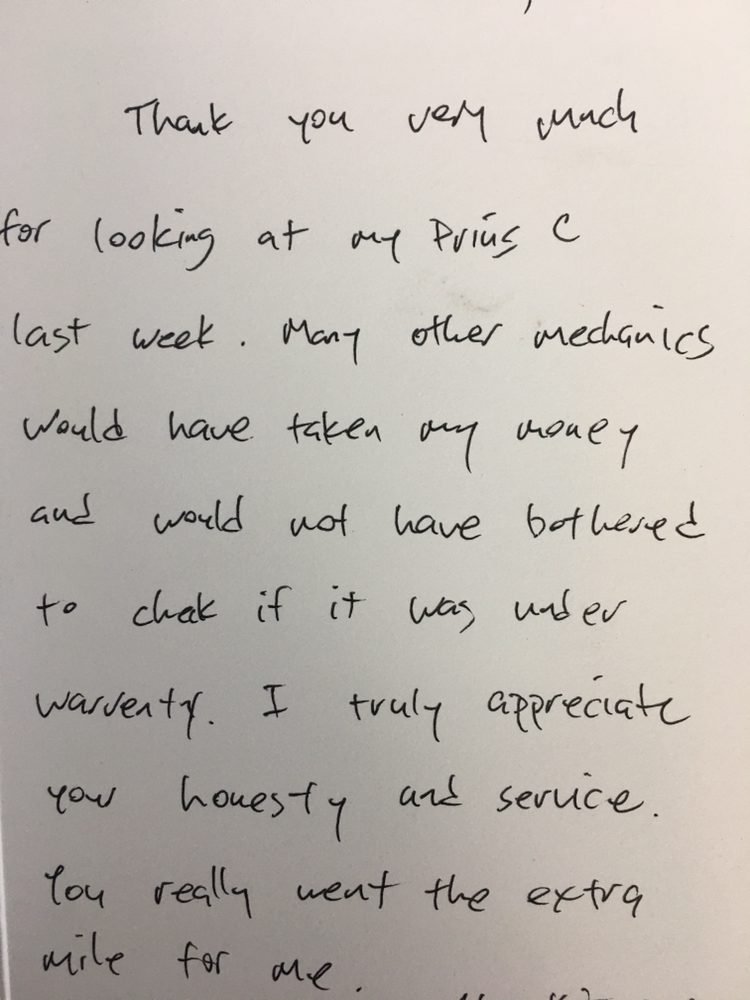 Thank you very much
for looking at my Prius C
last week. Many other mechanics
would have taken my money
and would not have bothered
to check if it was under
warrenty. I truly appreciate
your honesty and service.
You really went the extra
mile for me.